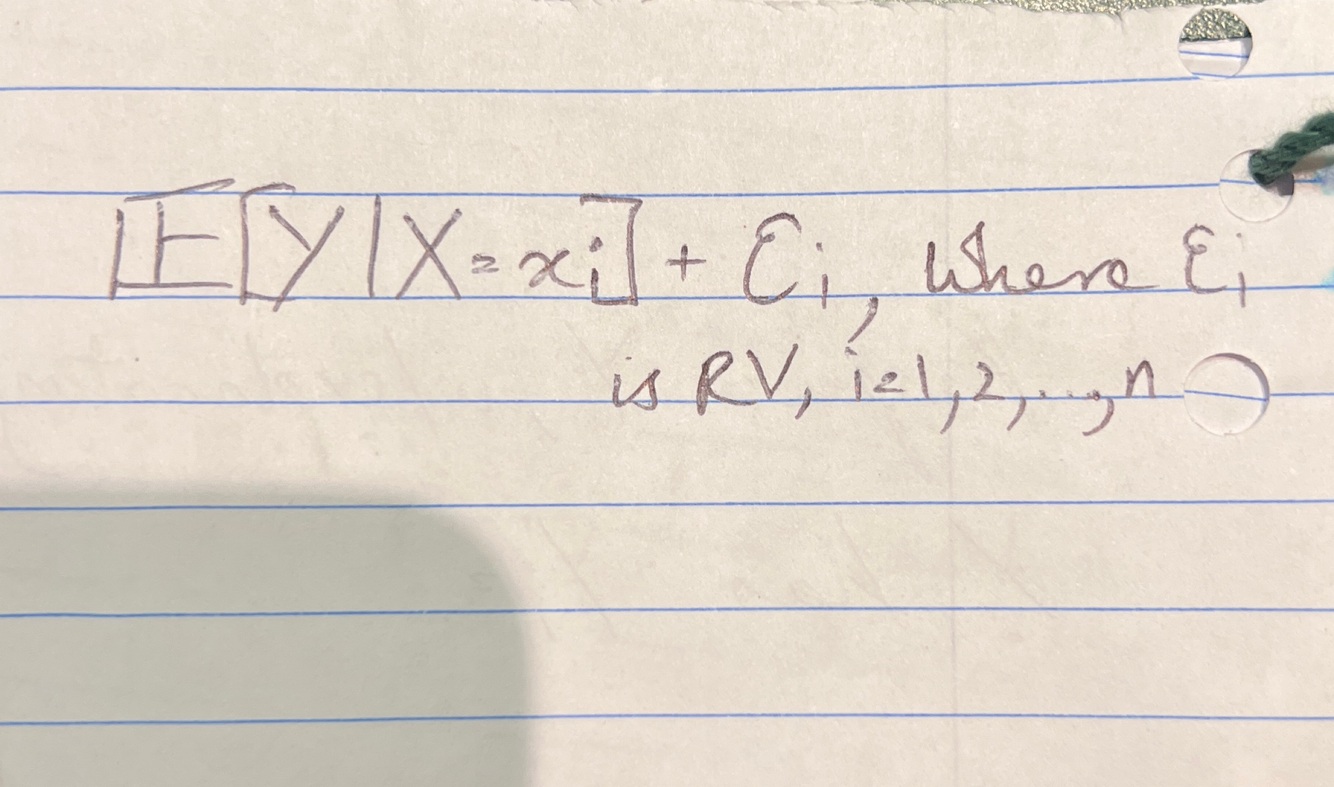 𝔼[Y|X=xᵢ] + Ɛᵢ, where Ɛᵢ
is RV, i=1,2,...,n